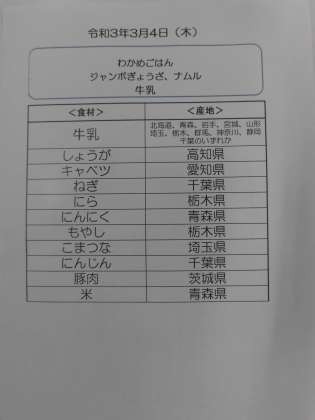 令和3年3月4日（木）
わかめごはん
ジャンボぎょうざ、ナムル
牛乳
＜食材＞ ＜産地＞
牛乳 北海道、青森、岩手、宮城、山形
埼玉、栃木、群馬、神奈川、静岡
千葉のいずれか
しょうが 高知県
キャベツ 愛知県
ねぎ 千葉県
にら 栃木県
にんにく 青森県
もやし 栃木県
こまつな 埼玉県
にんじん 千葉県
豚肉 茨城県
米 青森県